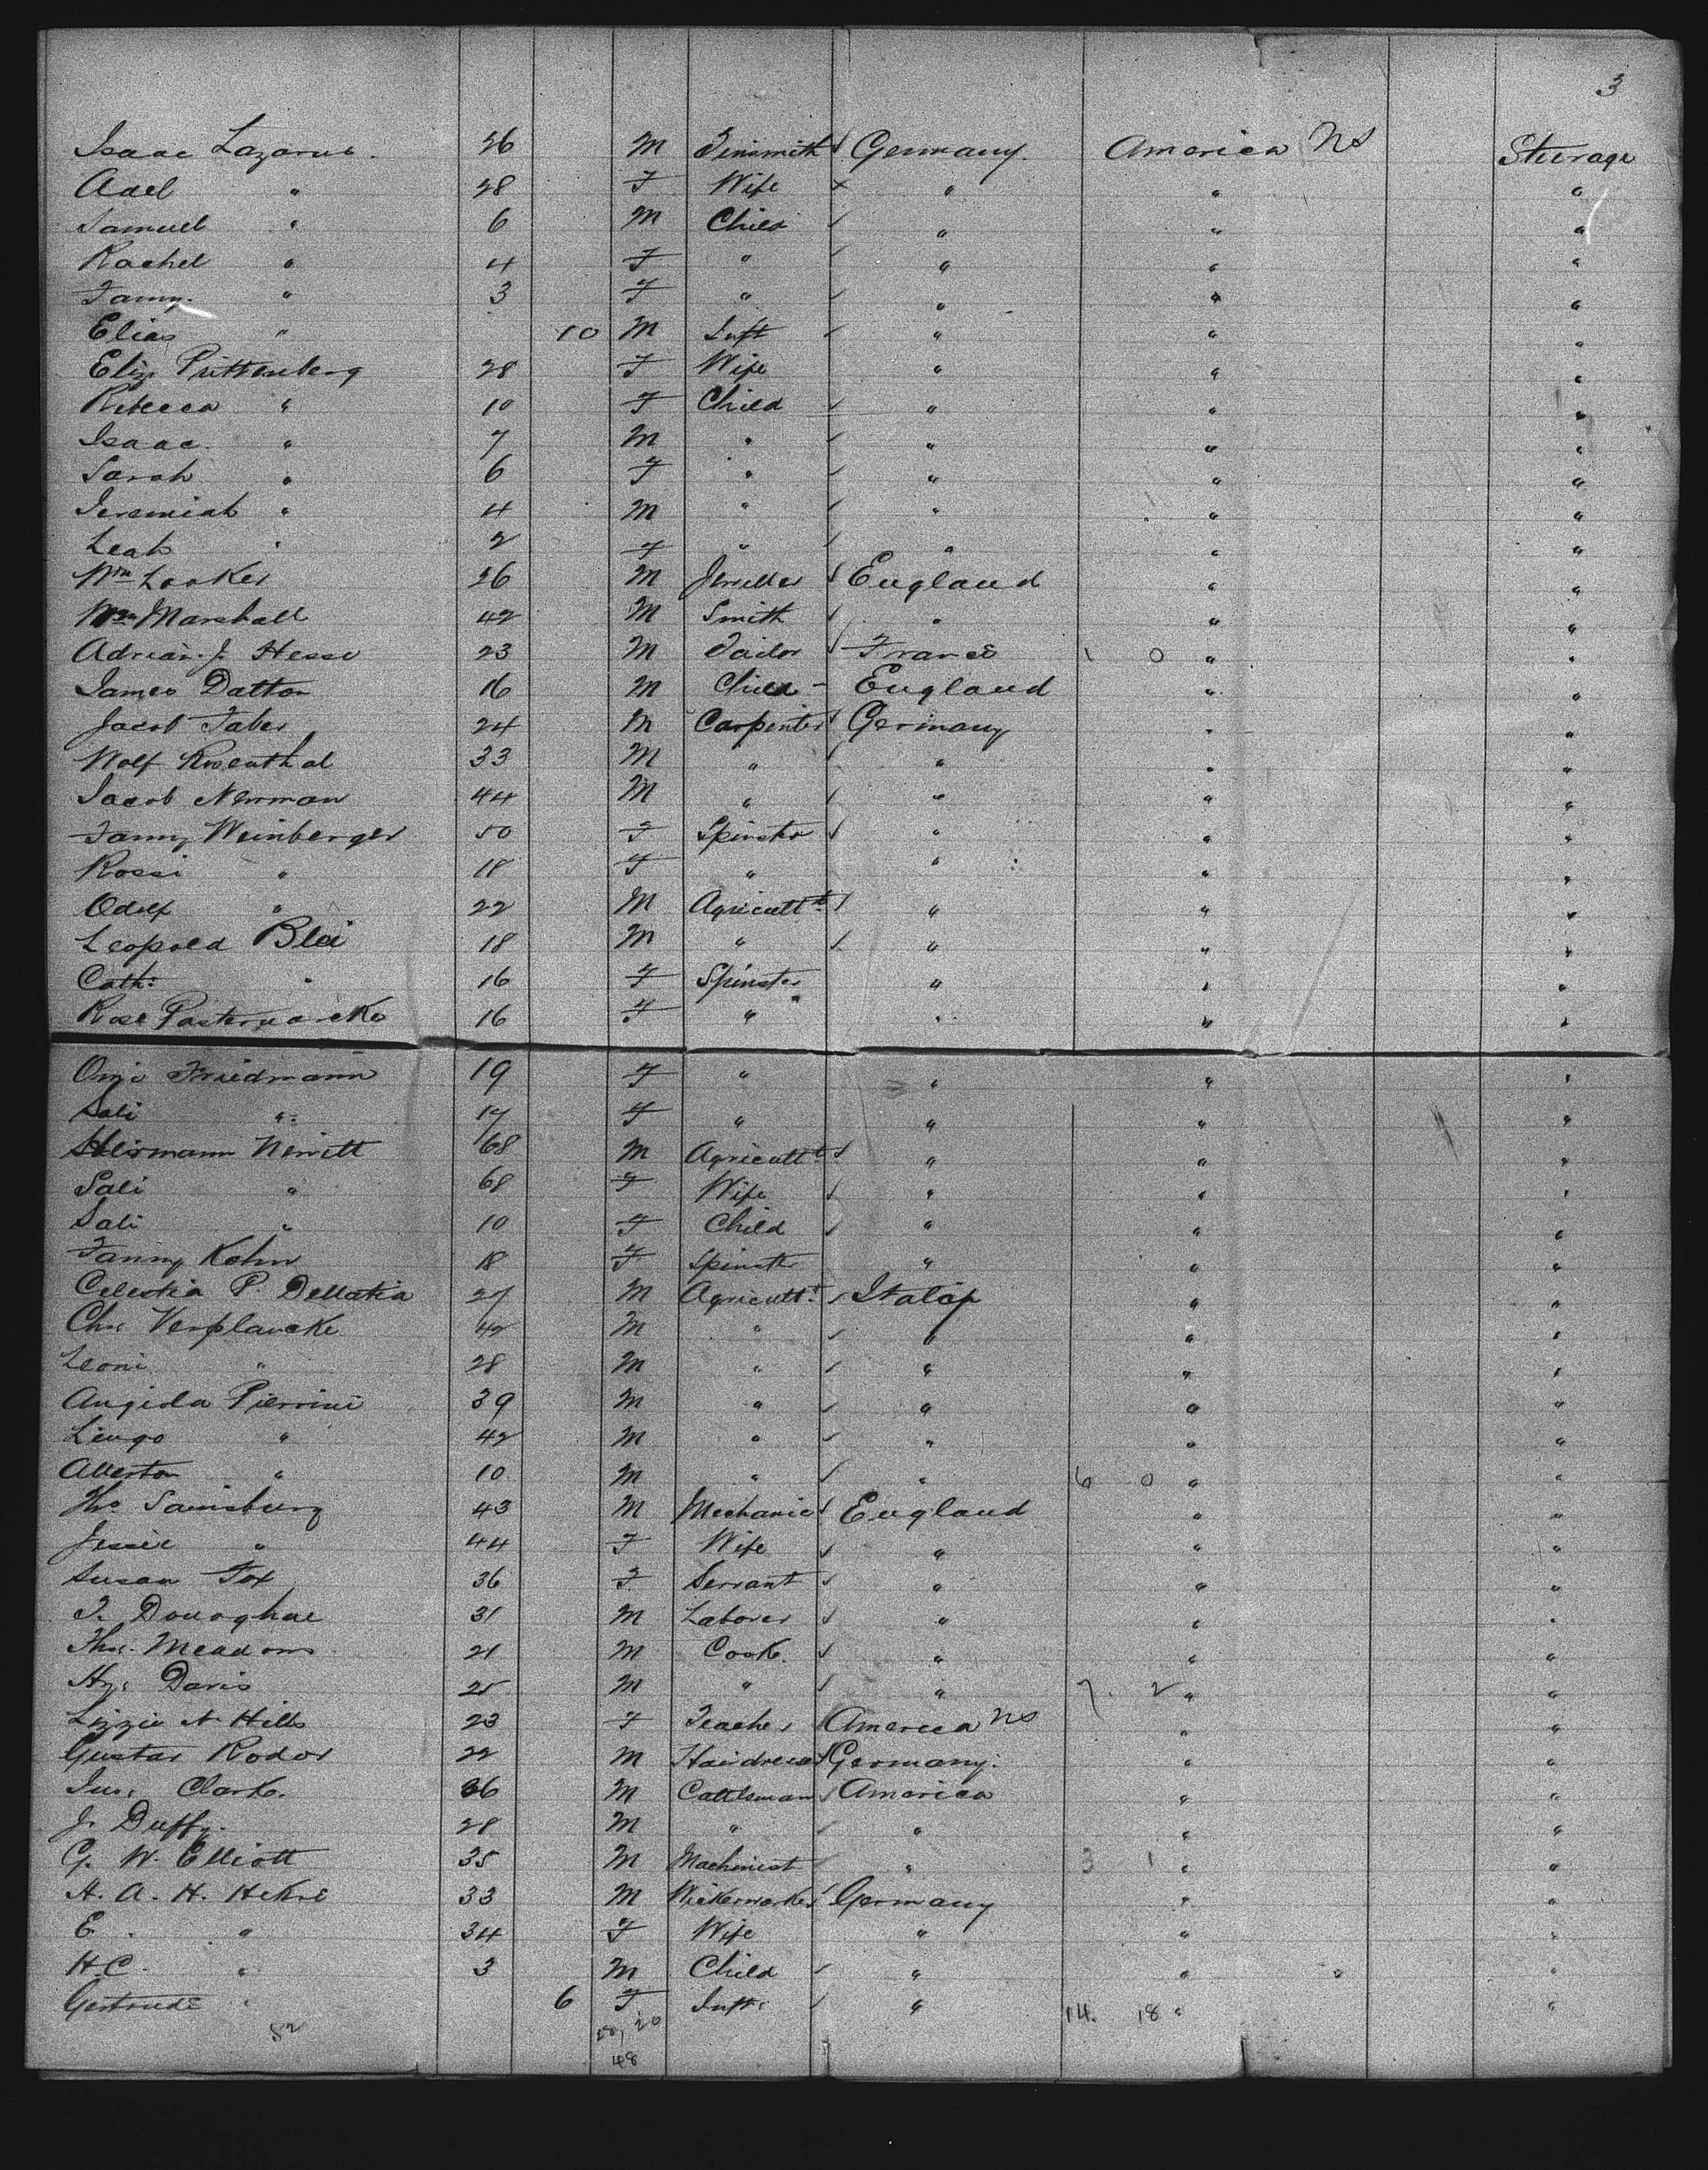 3
Isaac Lazarus. 26 M Tinsmith Germany. America NS Steerage
Adel " 28 F Wife " " "
Samuel " 6 M Child " " "
Rachel " 4 F " " " "
Fanny. " 3 F " " " "
Elias " 10 M Inft " " "
Eliz. Prittenberg 28 F Wife " " "
Rebecca " 10 F Child " " "
Isaac. " 7 M " " " "
Sarah " 6 F " " " "
Jeremiah " 4 M " " " "
Leah " 2 F " " " "
Wm Looker 26 M Jeweller England " "
Wm Marshall 42 M Smith " " "
Adrian. J. Hesse 23 M Tailor France 1 0 " "
James Dalton 16 M Child England " "
Jacob Faber 24 M Carpenter Germany " "
Wolf Rosenthal 33 M " " " "
Jacob Newman 44 M " " " "
Fanny Weinberger 50 F Spinster " " "
Rossi " 18 F " " " "
Adolf " 22 M Agricultt " " "
Leopold Blei 18 M " " " "
Cath: " 16 F Spinster " " "
Rose Pasternacke 16 F " " " "
Friedmann 19 F " " " "
Sali " 17 F " " " "
Hermann 68 M Agricultt " " "
Sali " 68 F Wife " " "
Sali " 10 F Child " " "
Fanny Kohn 18 F Spinster " " "
Celestia P. Dellatia 27 M Agricultt Italy " "
Chs. Verplancke 42 M " " " "
Leoni " 28 M " " " "
Angiola Pierrini 39 M " " " "
Lingo " 42 M " " " "
Alberton " 10 M " " 6 0 " "
Ths. Sainsbury 43 M Mechanic England " "
Jessie " 44 F Wife " " "
Susan Fox 36 F Servant " " "
T. Donoghue 31 M Laborer " " "
Thos. Meadows 21 M Cook. " " "
Hy. Davis 25 M " " 7. 2 " "
Lizzie N. Hills 23 F Teacher America NS " "
Gustav Rodor 22 M Hairdresser Germany. " "
Jno. Clarke. 36 M Cattleman America " "
J. Duffy. 28 M " " " "
G. W. Elliott 35 M Machinist " 3 1 " "
H. A. H. 33 M Wickerworker Germany " "
E. " 34 F Wife " " "
H.C. " 3 M Child " " "
Gertrude " 6 F Inft. " 14. 18 " "
52 20
48